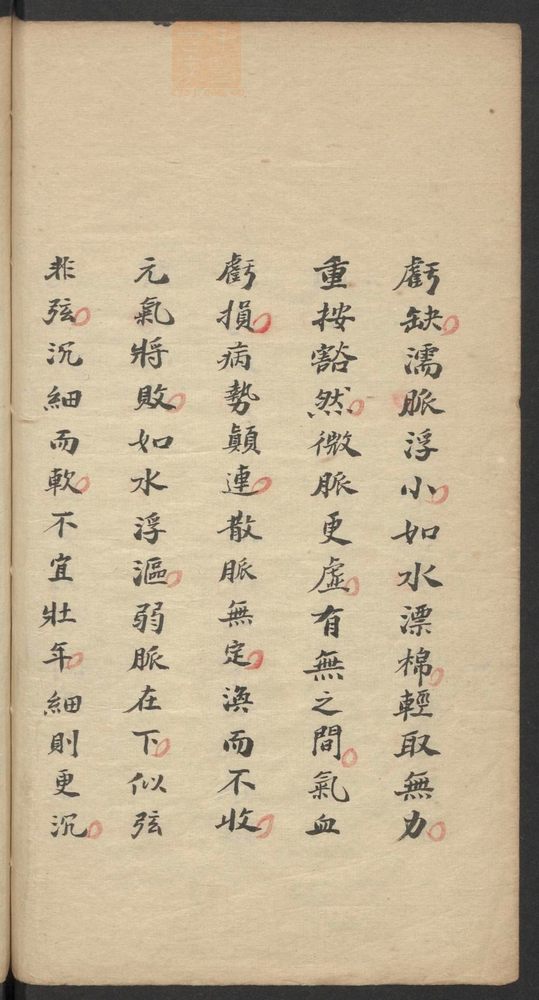 虧缺濡脈浮小如水漂棉輕取無力
重按豁然微脈更虛有無之間氣血
虧損病勢顛連散脈無定渙而不收
元氣將敗如水浮漚弱脈在下似弦
非弦沉細而軟不宜壯年細則更沉